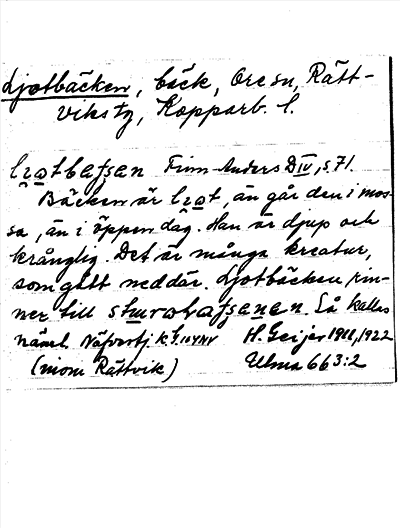 Ljotbäcken, bäck, Ore sn, Rätt-
viks tg, Kopparb. l.
Finn-Anders D IV, s. 71.
Bäcken är än går den i mos-
sa, än i öppen dag. Han är djup och
krånglig. Det är många kreatur,
som gått ned där. Ljotbäcken rin-
ner till Så kallas
näml. H. Geijer 1911, 1922
(inom Rättvik) Ulma 663:2